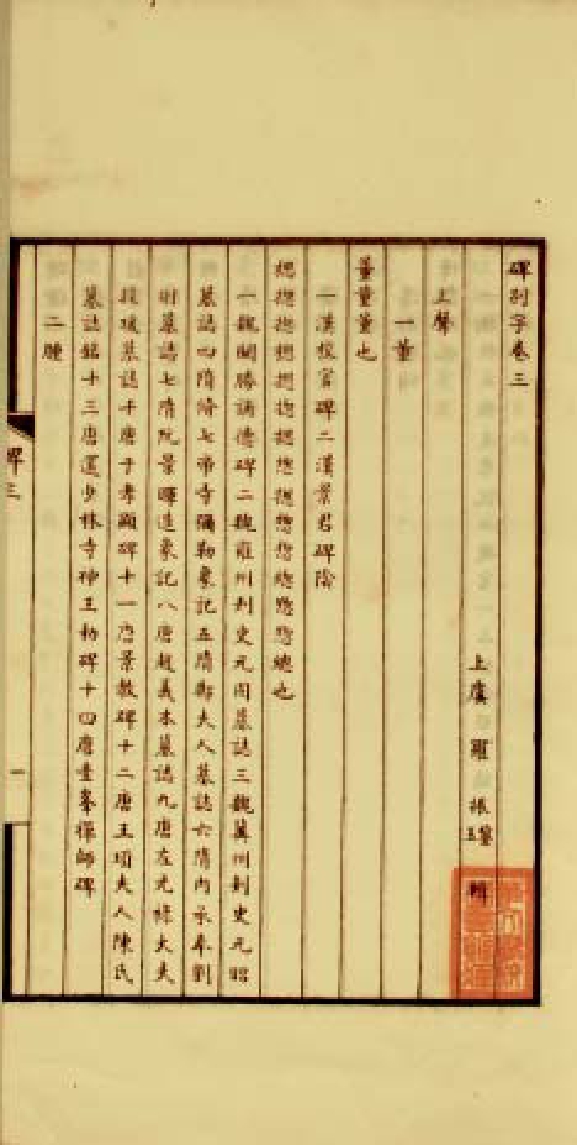 碑別字卷三
上虞 羅振鋆 振玉 輯
上聲
一董
董董董也
一漢校官碑二漢景君碑陰
緫揔揔揔揔揔揔揔揔惣惣惣惣惣總也
一魏闕勝誦德碑二魏雍州刺史元固墓誌三魏冀州刺史元昭
墓誌四隋脩七帝寺彌勒象記五隋鄭夫人墓誌六隋內承奉劉
則墓誌七隋阮景暉造象記八唐趙義本墓誌九唐左光祿大夫
段瑗墓誌十唐于孝顯碑十一唐景教碑十二唐王頊夫人陳氏
墓誌銘十三唐還少林寺神王勑碑十四唐圭峯禪師碑
二腫
碑三
一